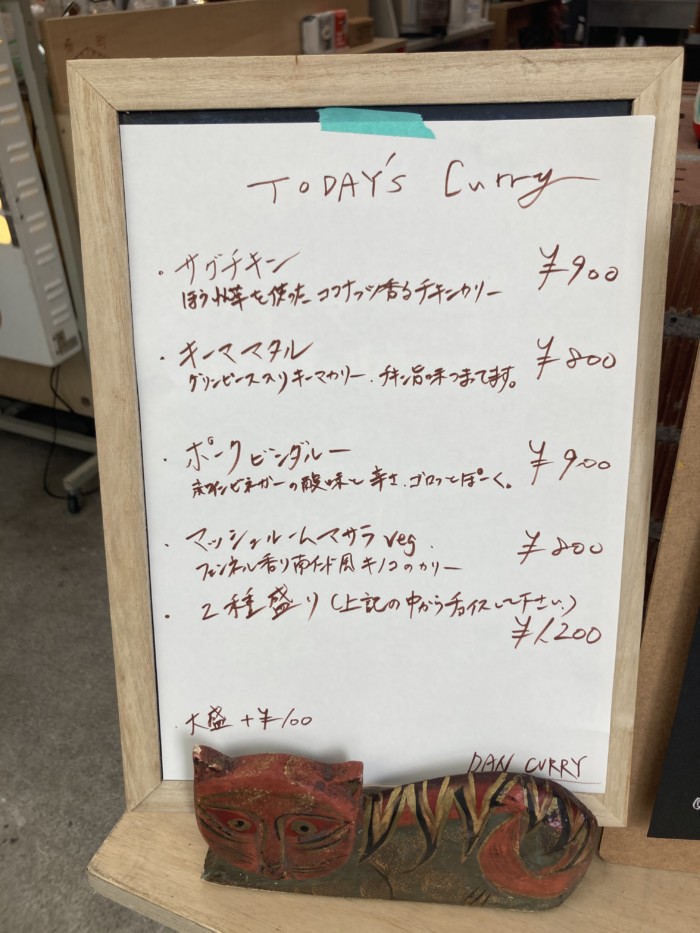 TODAY'S Curry
・サグチキン ¥900
ほうれん草を使った ココナッツ香るチキンカリー
・キーママタル ¥800
グリンピース入りキーマカリー、チキン旨味つまってます。
・ポークビンダルー ¥900
赤ワインビネガーの酸味と辛さ、ゴロっとぽーく。
・マッシュルームマサラ veg ¥800
フェンネル香り南インド風キノコのカリー
・2種盛り(上記の中からチョイスして下さい)
¥1,200
・大盛 +¥100
DAN CURRY